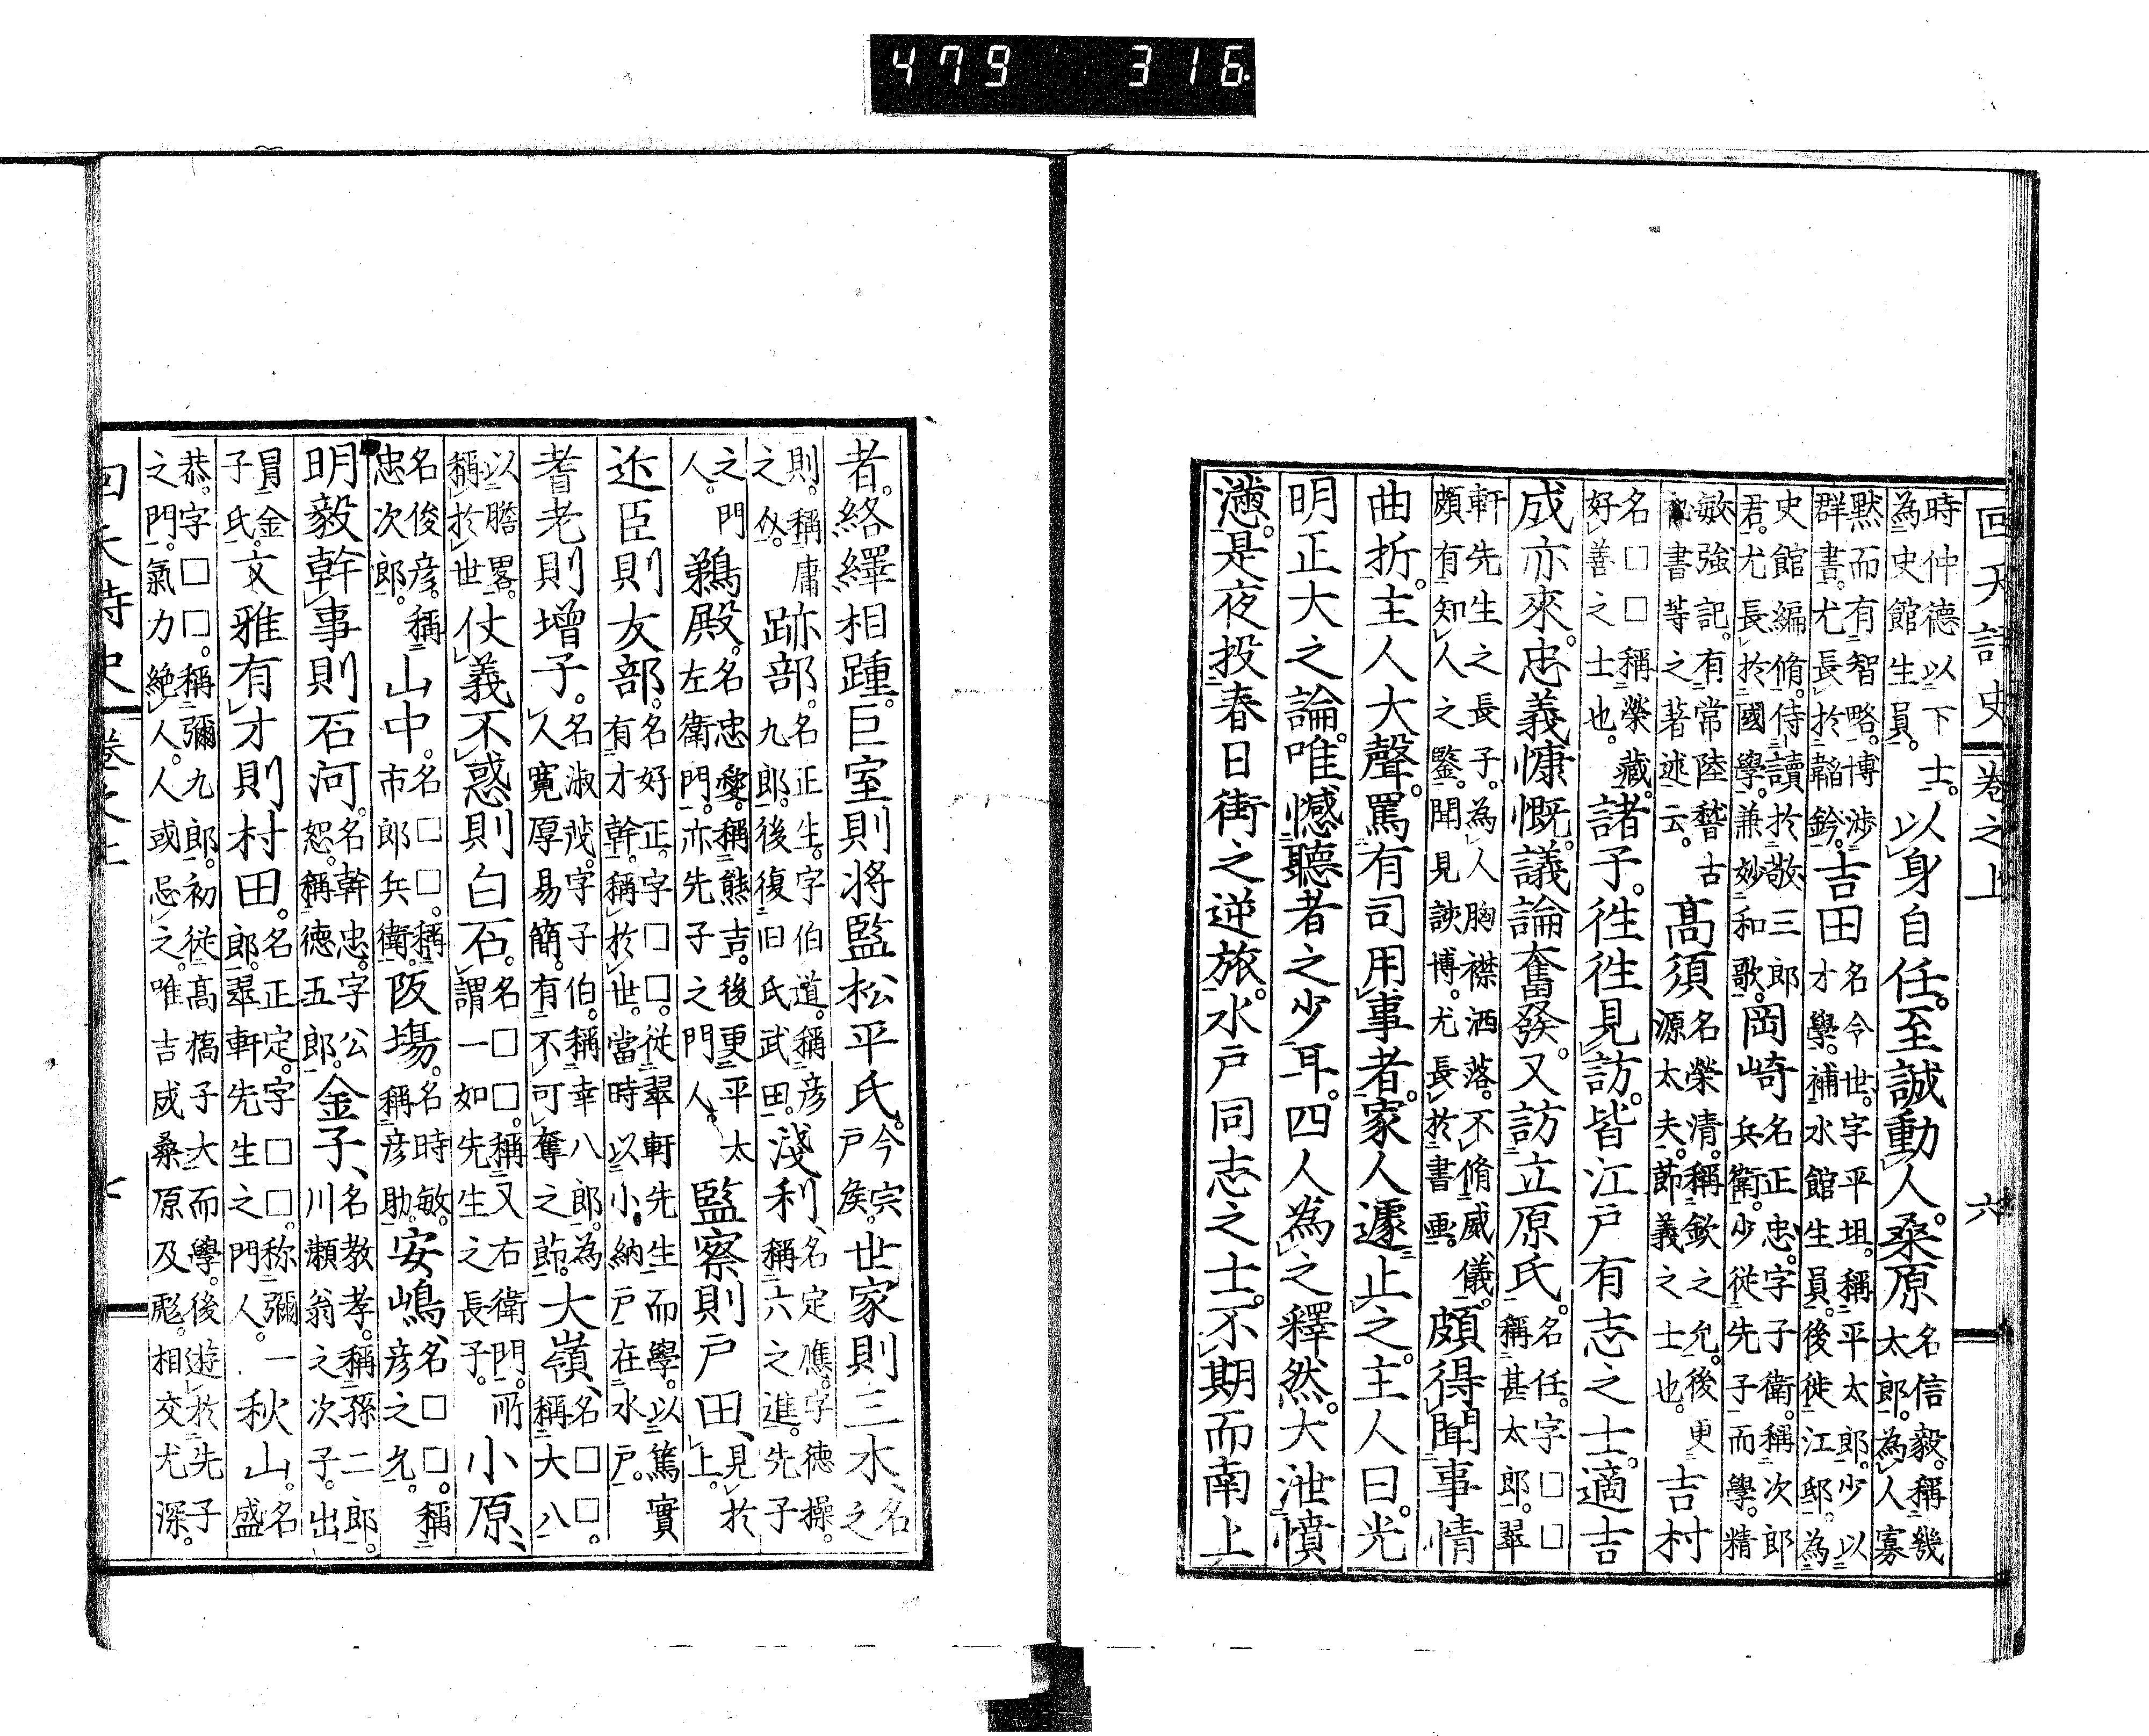 479 316
回天詩史 卷之上 六
時仲德以下士。
為史館生員。以身自任。至誠動人。桑原名信毅。稱幾
太郎。為人寡
默而有智略。博涉
群書。尤長於韜鈐。吉田名令世。字平坦。稱平太郎。少以
才學。補水館生員。後徙江邸。為
史館編脩。侍讀於敬三郎
君。尤長於國學。兼妙和歌。岡崎名正忠。字子衛。稱次郎
兵衛。少從先子而學。精
敏強記。有常陸嵇古
書等之著述云。高須名榮清。稱欽之允。後更
源太夫。節義之士也。吉村
名□□稱榮藏。
好善之士也。諸子。徃徃見訪。皆江戶有志之士。適吉
成亦來。忠義慷慨。議論奮發。又訪立原氏。名任。字□□
稱甚太郎。翠
軒先生之長子。為人胸襟洒落。不脩威儀。
頗有知人之鑒。聞見談博。尤長於書画。頗得聞事情
曲折。主人大聲。罵有司用事者。家人遽止之。主人曰。光
明正大之論。唯憾聽者之少耳。四人為之釋然。大泄憤
懣。是夜投春日街之逆旅。水戶同志之士。不期而南上
者。絡繹相踵。巨室則將監松平氏。今宗
戶侯。世家則三木、名
之
則。稱庸
之介。跡部。名正生。字伯道。稱彦
九郎。後復旧氏武田。淺利、名定應。字德操。
稱六之進。先子
之門
人。鵜殿。名忠愛。稱熊吉。後更平太
左衛門。亦先子之門人。監察則戶田、見於
上。
近臣則友部。名好正。字□□。從翠軒先生而學。以篤實
有才幹。稱於世。當時以小納戶在水戶。
耆老則增子。名淑茂。字子伯。稱幸八郎。為
人寬厚易簡。有不可奪之節。大嶺、名□□。
稱大八
以膽畧。
稱於世仗義不惑則白石。名□□。稱又右衛門。所
謂一如先生之長子。小原、
名俊彦。稱
忠次郎。山中。名□□。稱
市郎兵衛。阪場。名時敏。
稱彦助。安嶋、名□□。稱
彦之允。
明毅幹事則石河。名幹忠。字公
恕。稱德五郎。金子、名教孝。稱孫二郎。
川瀨翁之次子。出
冐金
子氏。文雅有才則村田。名正定。字□□。称彌一
郎。翠軒先生之門人。秋山。名
盛
恭。字□□。稱彌九郎。初從高橋子大而學。後遊於先子
之門。氣力絶人。人或忌之。唯吉成桑原及彪。相交尤深。
回天詩史 卷之上 七